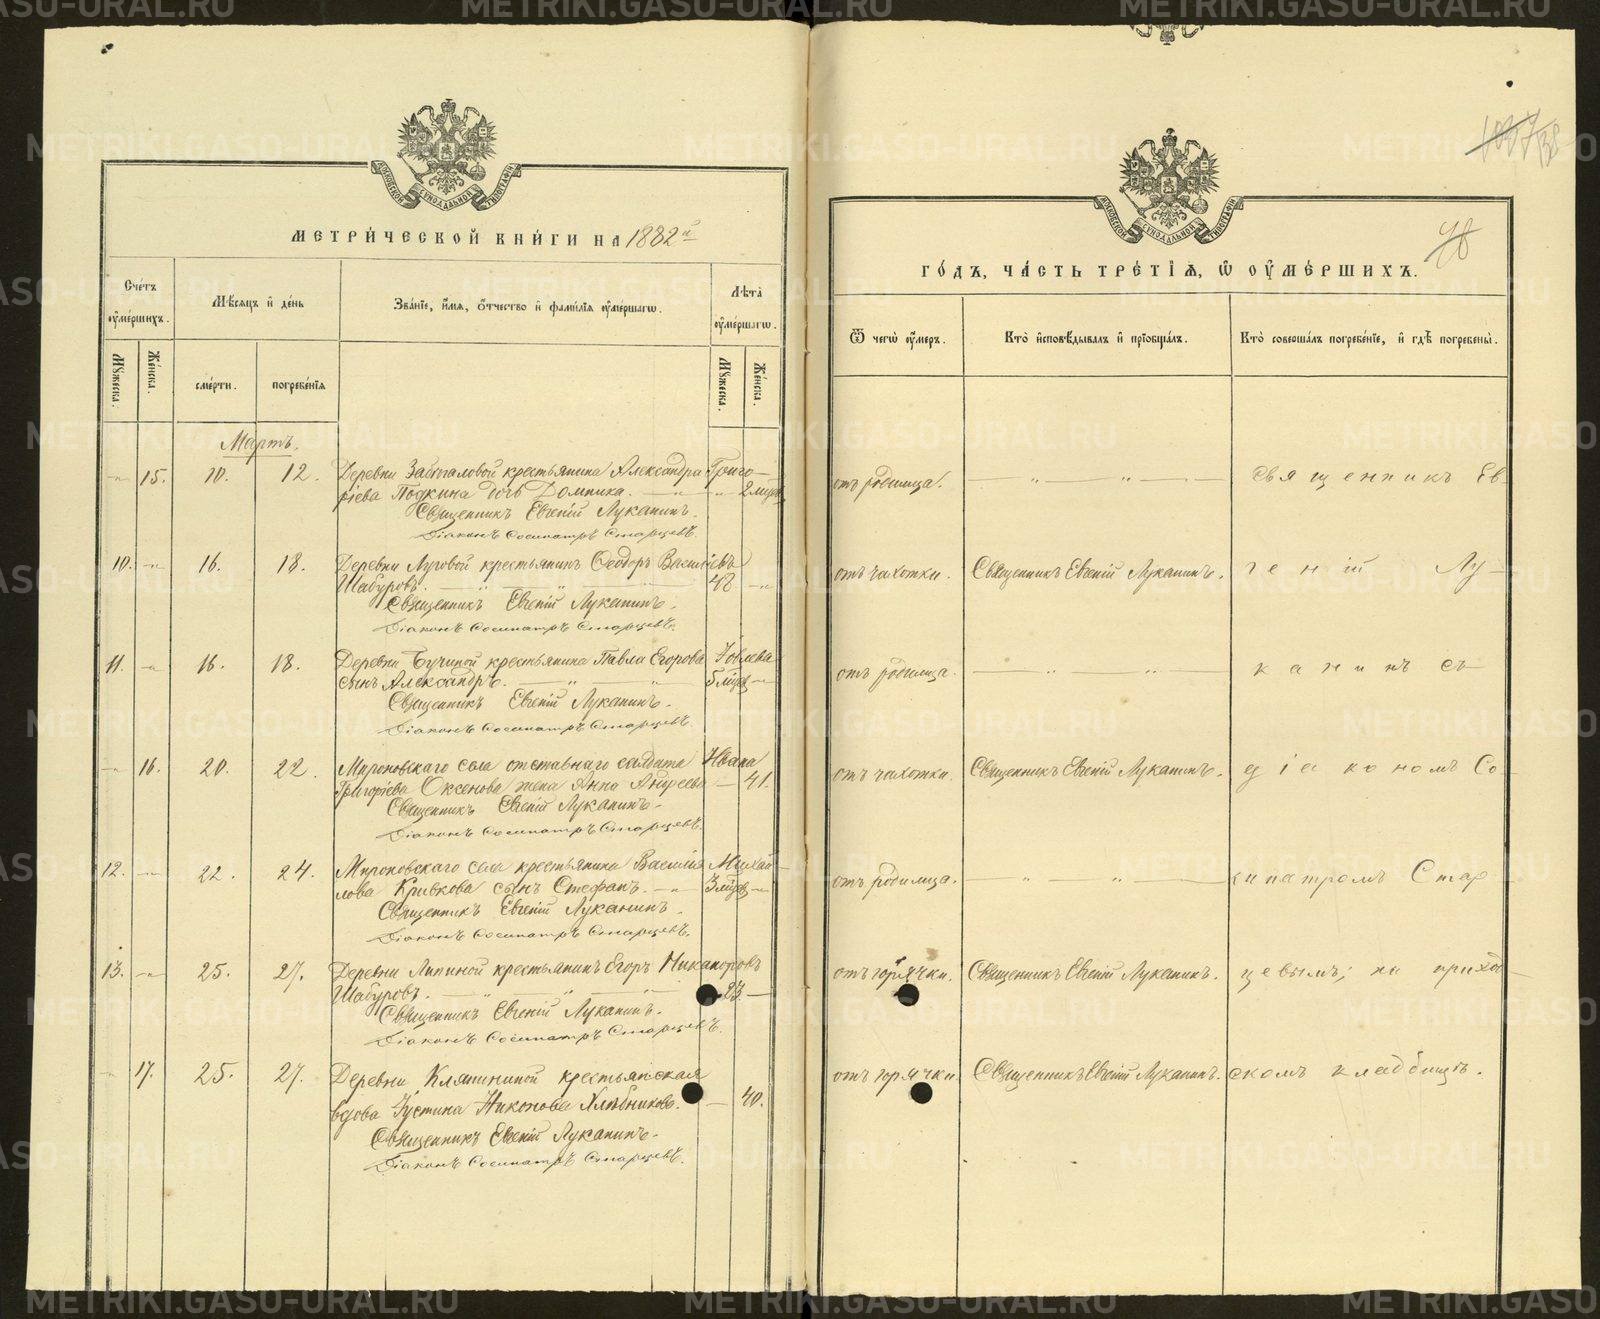 МЕТРИ́ЧЕСКОЙ КНИ́ГИ НА 1882й
Сче́тъ ᲂу҆ме́ршихъ.
Мꙋжеска.
Же́нска.
Мѣ́сяцъ и҆ де́нь
сме́рти.
погребе́нїя
Зва́нїе, и҆́мя, ѻ҆́тчество и҆ фами́лїя ᲂу҆ме́ршагѡ.
Лѣ́та ᲂу҆ме́ршагѡ.
Мꙋжеска.
Же́нска.
Мартъ.
15. 10. 12. Деревни Забогаловой крестьянина Александра Григо-
рiева Подкина дочь Домника. 2 мѣся
Священникъ Евгенiй Луканинъ.
Дiаконъ Сосипатръ Старцевъ.
10. 16. 18. Деревни Луговой крестьянинъ Ѳеодоръ Василiевъ
Шабуровъ. 48
Священникъ Евгенiй Луканинъ.
Дiаконъ Сосипатръ Старцевъ.
11. 16. 18. Деревни Бучиной крестьянина Павла Егорова Iовлева
сынъ Александръ. 5 мѣся
Священникъ Евгенiй Луканинъ.
Дiаконъ Сосипатръ Старцевъ.
16. 20. 22. Мироновскаго села отставнаго солдата Ивана
Григорiева Оксенова жена Анна Андреева 41.
Священникъ Евгенiй Луканинъ.
Дiаконъ Сосипатръ Старцевъ.
12. 22. 24. Мироновскаго села крестьянина Василiя Михай-
лова Кривкова сынъ Стефанъ. 3 мѣся
Священникъ Евгенiй Луканинъ.
Дiаконъ Сосипатръ Старцевъ.
13. 25. 27. Деревни Липиной крестьянинъ Егоръ Никаноровъ
Шабуровъ. 23.
Священникъ Евгенiй Луканинъ.
Дiаконъ Сосипатръ Старцевъ.
17. 25. 27. Деревни Кляпининой крестьянская
вдова Iустина Никонова Хлѣбникова. 40.
Священникъ Евгенiй Луканинъ.
Дiаконъ Сосипатръ Старцевъ.
1037 138
48
ГО́ДЪ, ЧА́СТЬ ТРЕ́ТЇѦ, Ѡ҆ ОУ҆МЕ́РШИХЪ.
Ѿ чегѡ̀ ᲂу҆́меръ.
Кто̀ и҆сповѣ́дывалъ и҆ прїѡбща́лъ.
Кто̀ соверша́лъ погребе́нїе, и҆ гдѣ̀ погребены̀.
отъ родимца. священникъ Ев-
отъ чахотки. Священникъ Евгенiй Луканинъ. генiй Лу-
отъ родимца. канинъ съ
отъ чахотки. Священникъ Евгенiй Луканинъ. дiакономъ Со-
отъ родимца. сипатромъ Стар-
отъ горячки. Священникъ Евгенiй Луканинъ. цевымъ; на приход-
отъ горячки. Священникъ Евгенiй Луканинъ. скомъ кладбищѣ.
METRIKI.GASO-URAL.RU